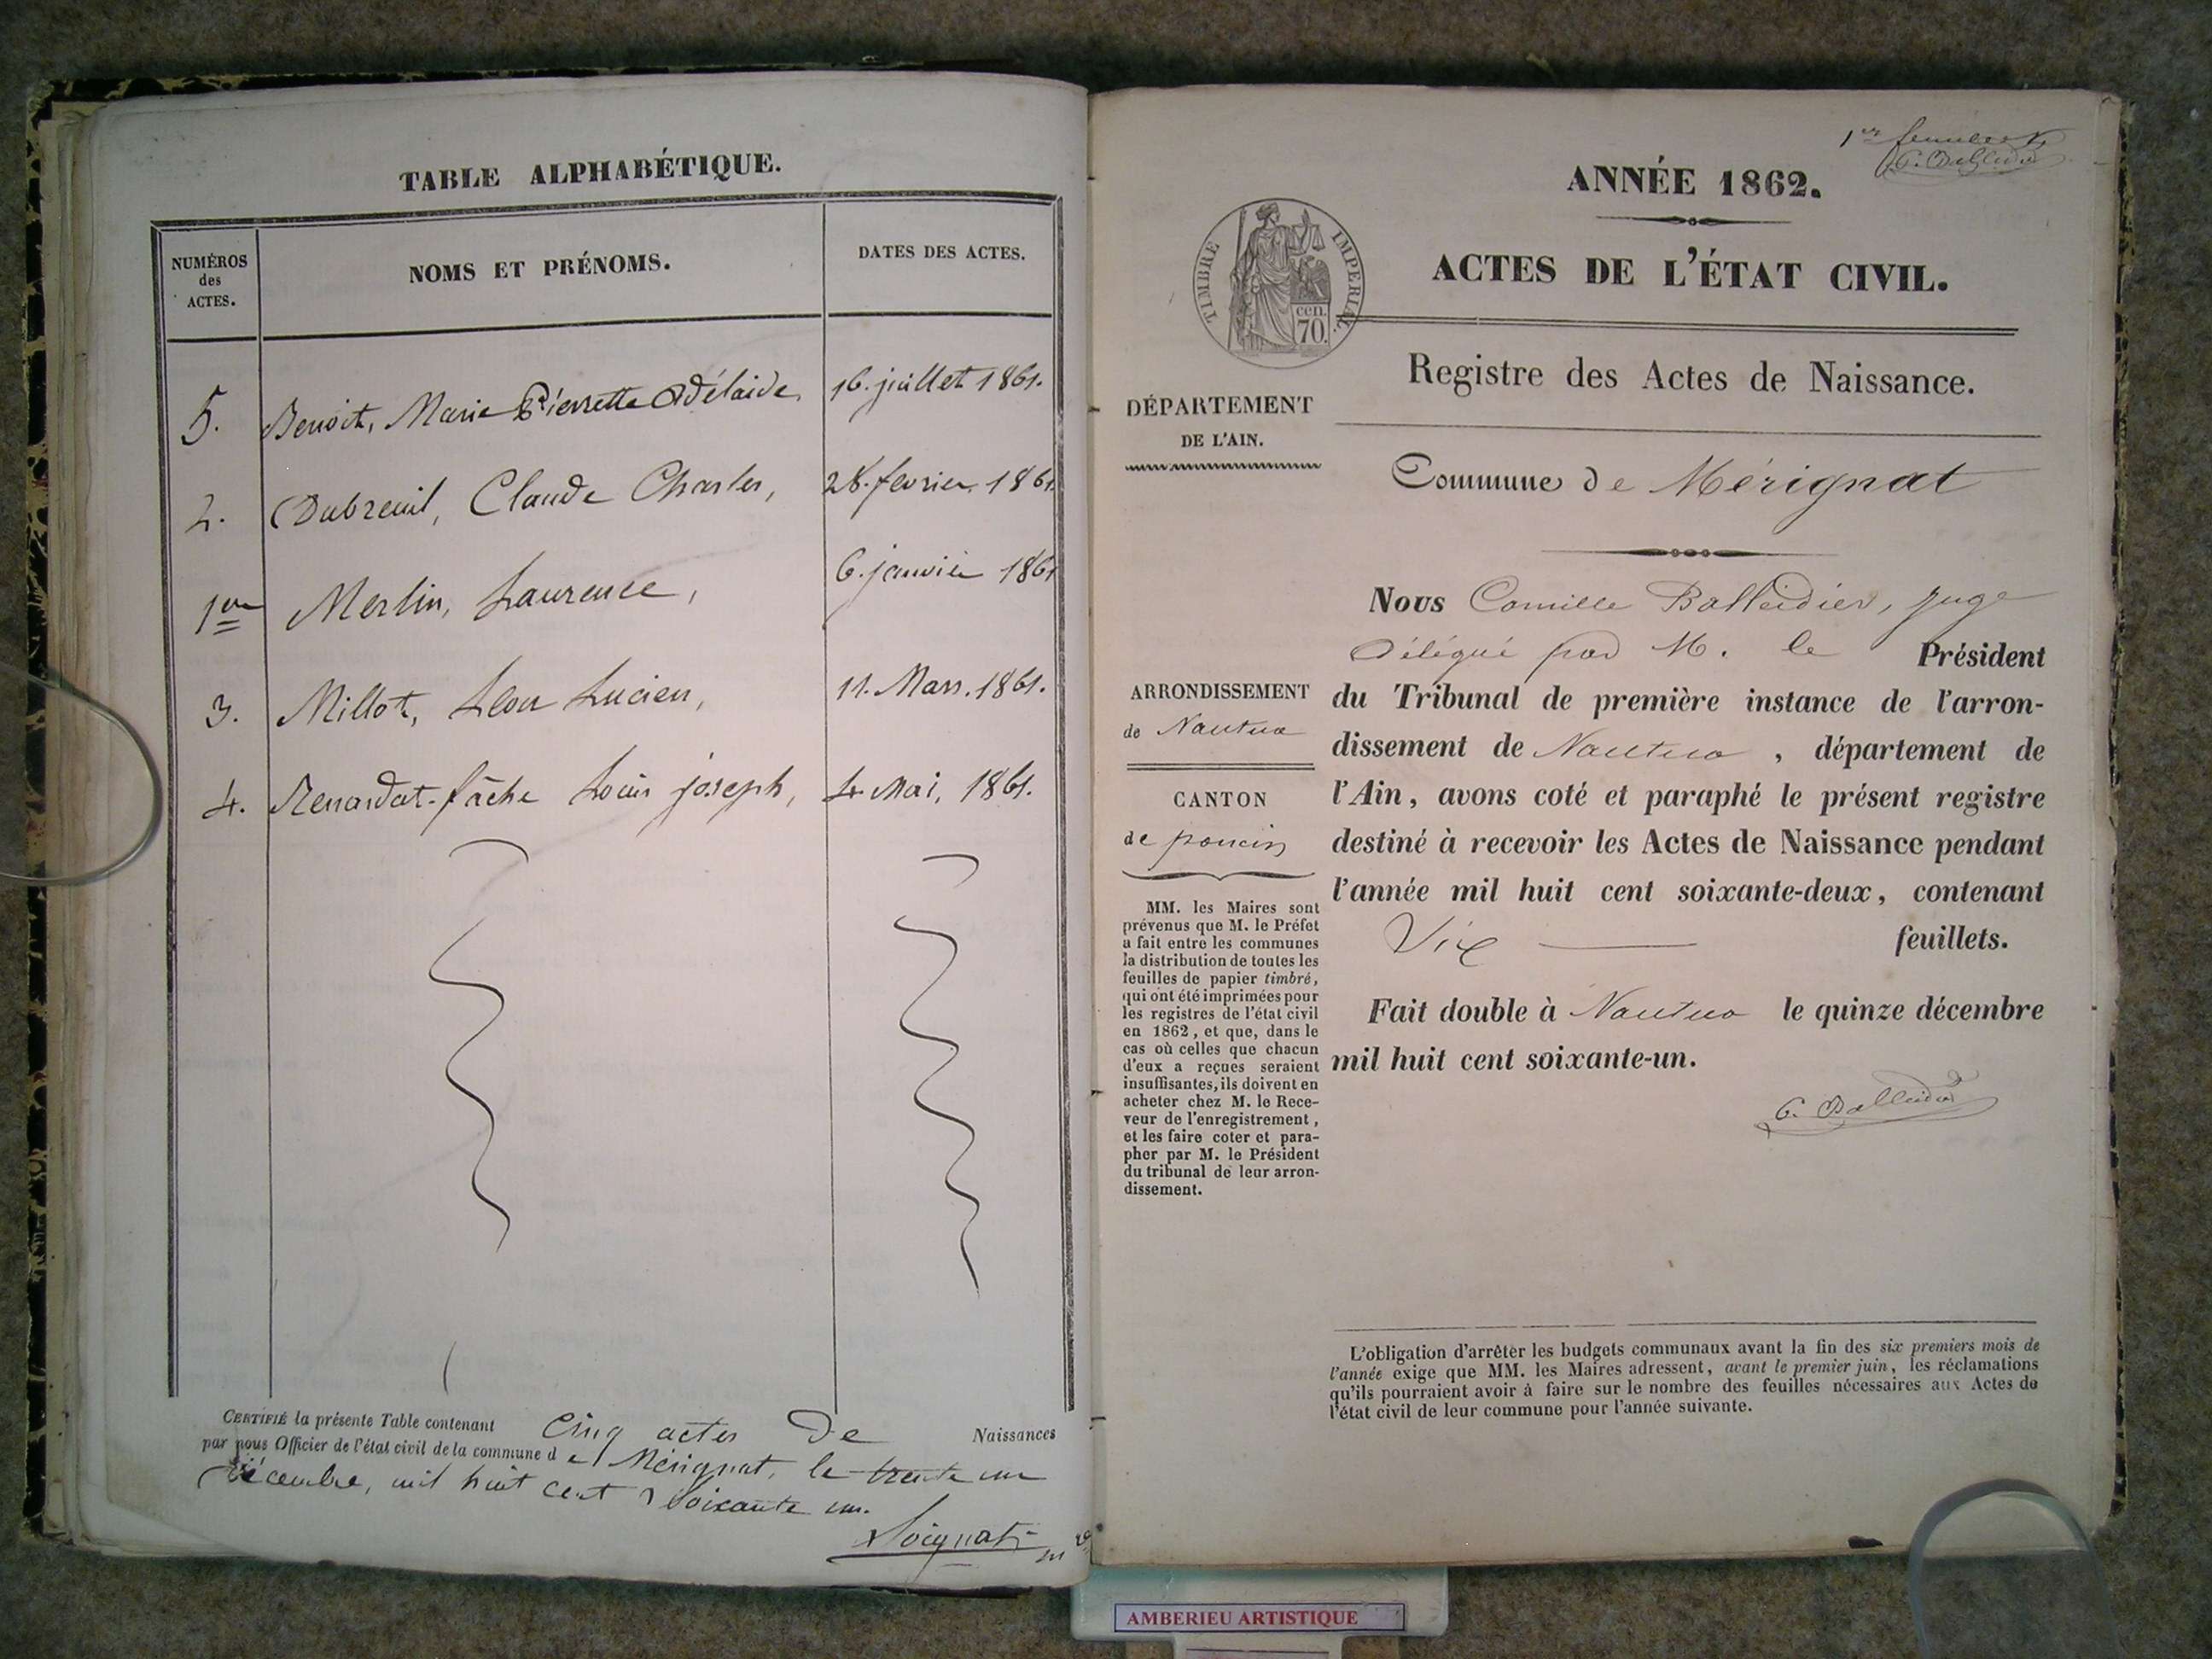 TABLE ALPHABÉTIQUE.
NUMÉROS
des
ACTES.
NOMS ET PRÉNOMS.
DATES DES ACTES.
5. Benoit, Marie Pierrette Adélaide, 16. juillet 1861.
2. Dubreuil, Claude Charles, 28. fevrier 1861
1er Merlin, Laurence, 6. janvier 1861
3. Millot, Leon Lucien, 11. Mars. 1861.
4. Renardat-fâche Louis joseph, 4. Mai, 1861.
CERTIFIÉ la présente Table contenant cinq actes de Naissances
par nous Officier de l'état civil de la commune de Mérignat, le trente un
décembre, mil huit cent Soixante un.
1er
C. Balleidier
ANNÉE 1862.
ACTES DE L'ÉTAT CIVIL.
TIMBRE IMPERIAL.
cen.
70.
Registre des Actes de Naissance.
DÉPARTEMENT
DE L'AIN.
Commune de Mérignat
Nous Camille Balleidier, juge
délégué par M. le Président
du Tribunal de première instance de l'arron-
dissement de Nantua, département de
l'Ain, avons coté et paraphé le présent registre
destiné à recevoir les Actes de Naissance pendant
l'année mil huit cent soixante-deux, contenant
Six feuillets.
Fait double à Nantua le quinze décembre
mil huit cent soixante-un.
C. Balleidier
ARRONDISSEMENT
de Nantua
CANTON
de poncin
MM. les Maires sont
prévenus que M. le Préfet
a fait entre les communes
la distribution de toutes les
feuilles de papier timbré,
qui ont été imprimées pour
les registres de l'état civil
en 1862, et que, dans le
cas où celles que chacun
d'eux a reçues seraient
insuffisantes, ils doivent en
acheter chez M. le Rece-
veur de l'enregistrement,
et les faire coter et para-
pher par M. le Président
du tribunal de leur arron-
dissement.
L'obligation d'arrêter les budgets communaux avant la fin des six premiers mois de
l'année exige que MM. les Maires adressent, avant le premier juin, les réclamations
qu'ils pourraient avoir à faire sur le nombre des feuilles nécessaires aux Actes de
l'état civil de leur commune pour l'année suivante.
AMBERIEU ARTISTIQUE